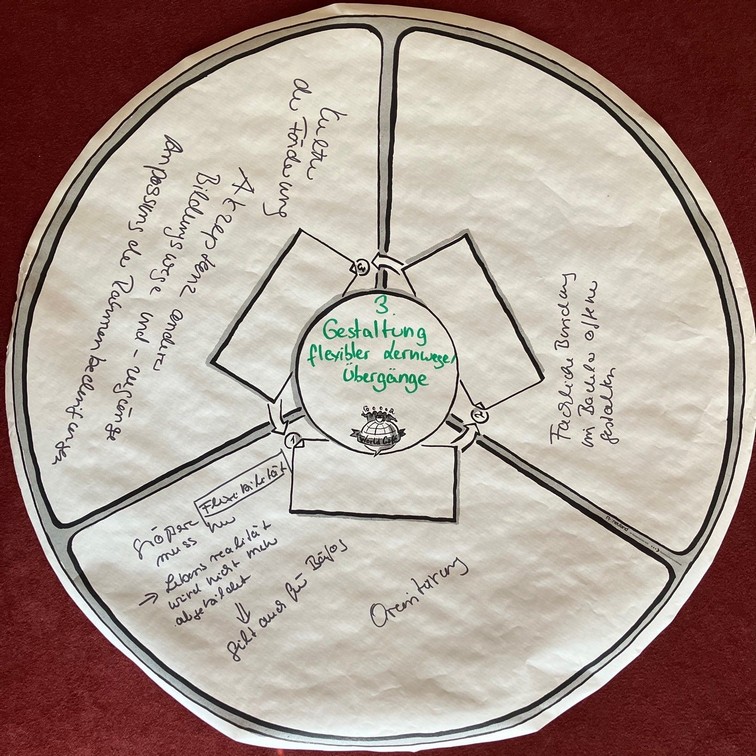 3.
Gestaltung
flexibler Lernwege/
Übergänge
Green
World Café
1
2
3
Größere Flexibilität
muss her
→ Lebensrealität
wird nicht mehr
abgebildet
↓
gilt auch für
Orientierung
Fachliche Bindung
im Bachelor offener
gestalten
Kultur
der Förderung
Akzeptanz ander-
Bildungswege und -zugänge
Anpassung der Rahmenbedingungen